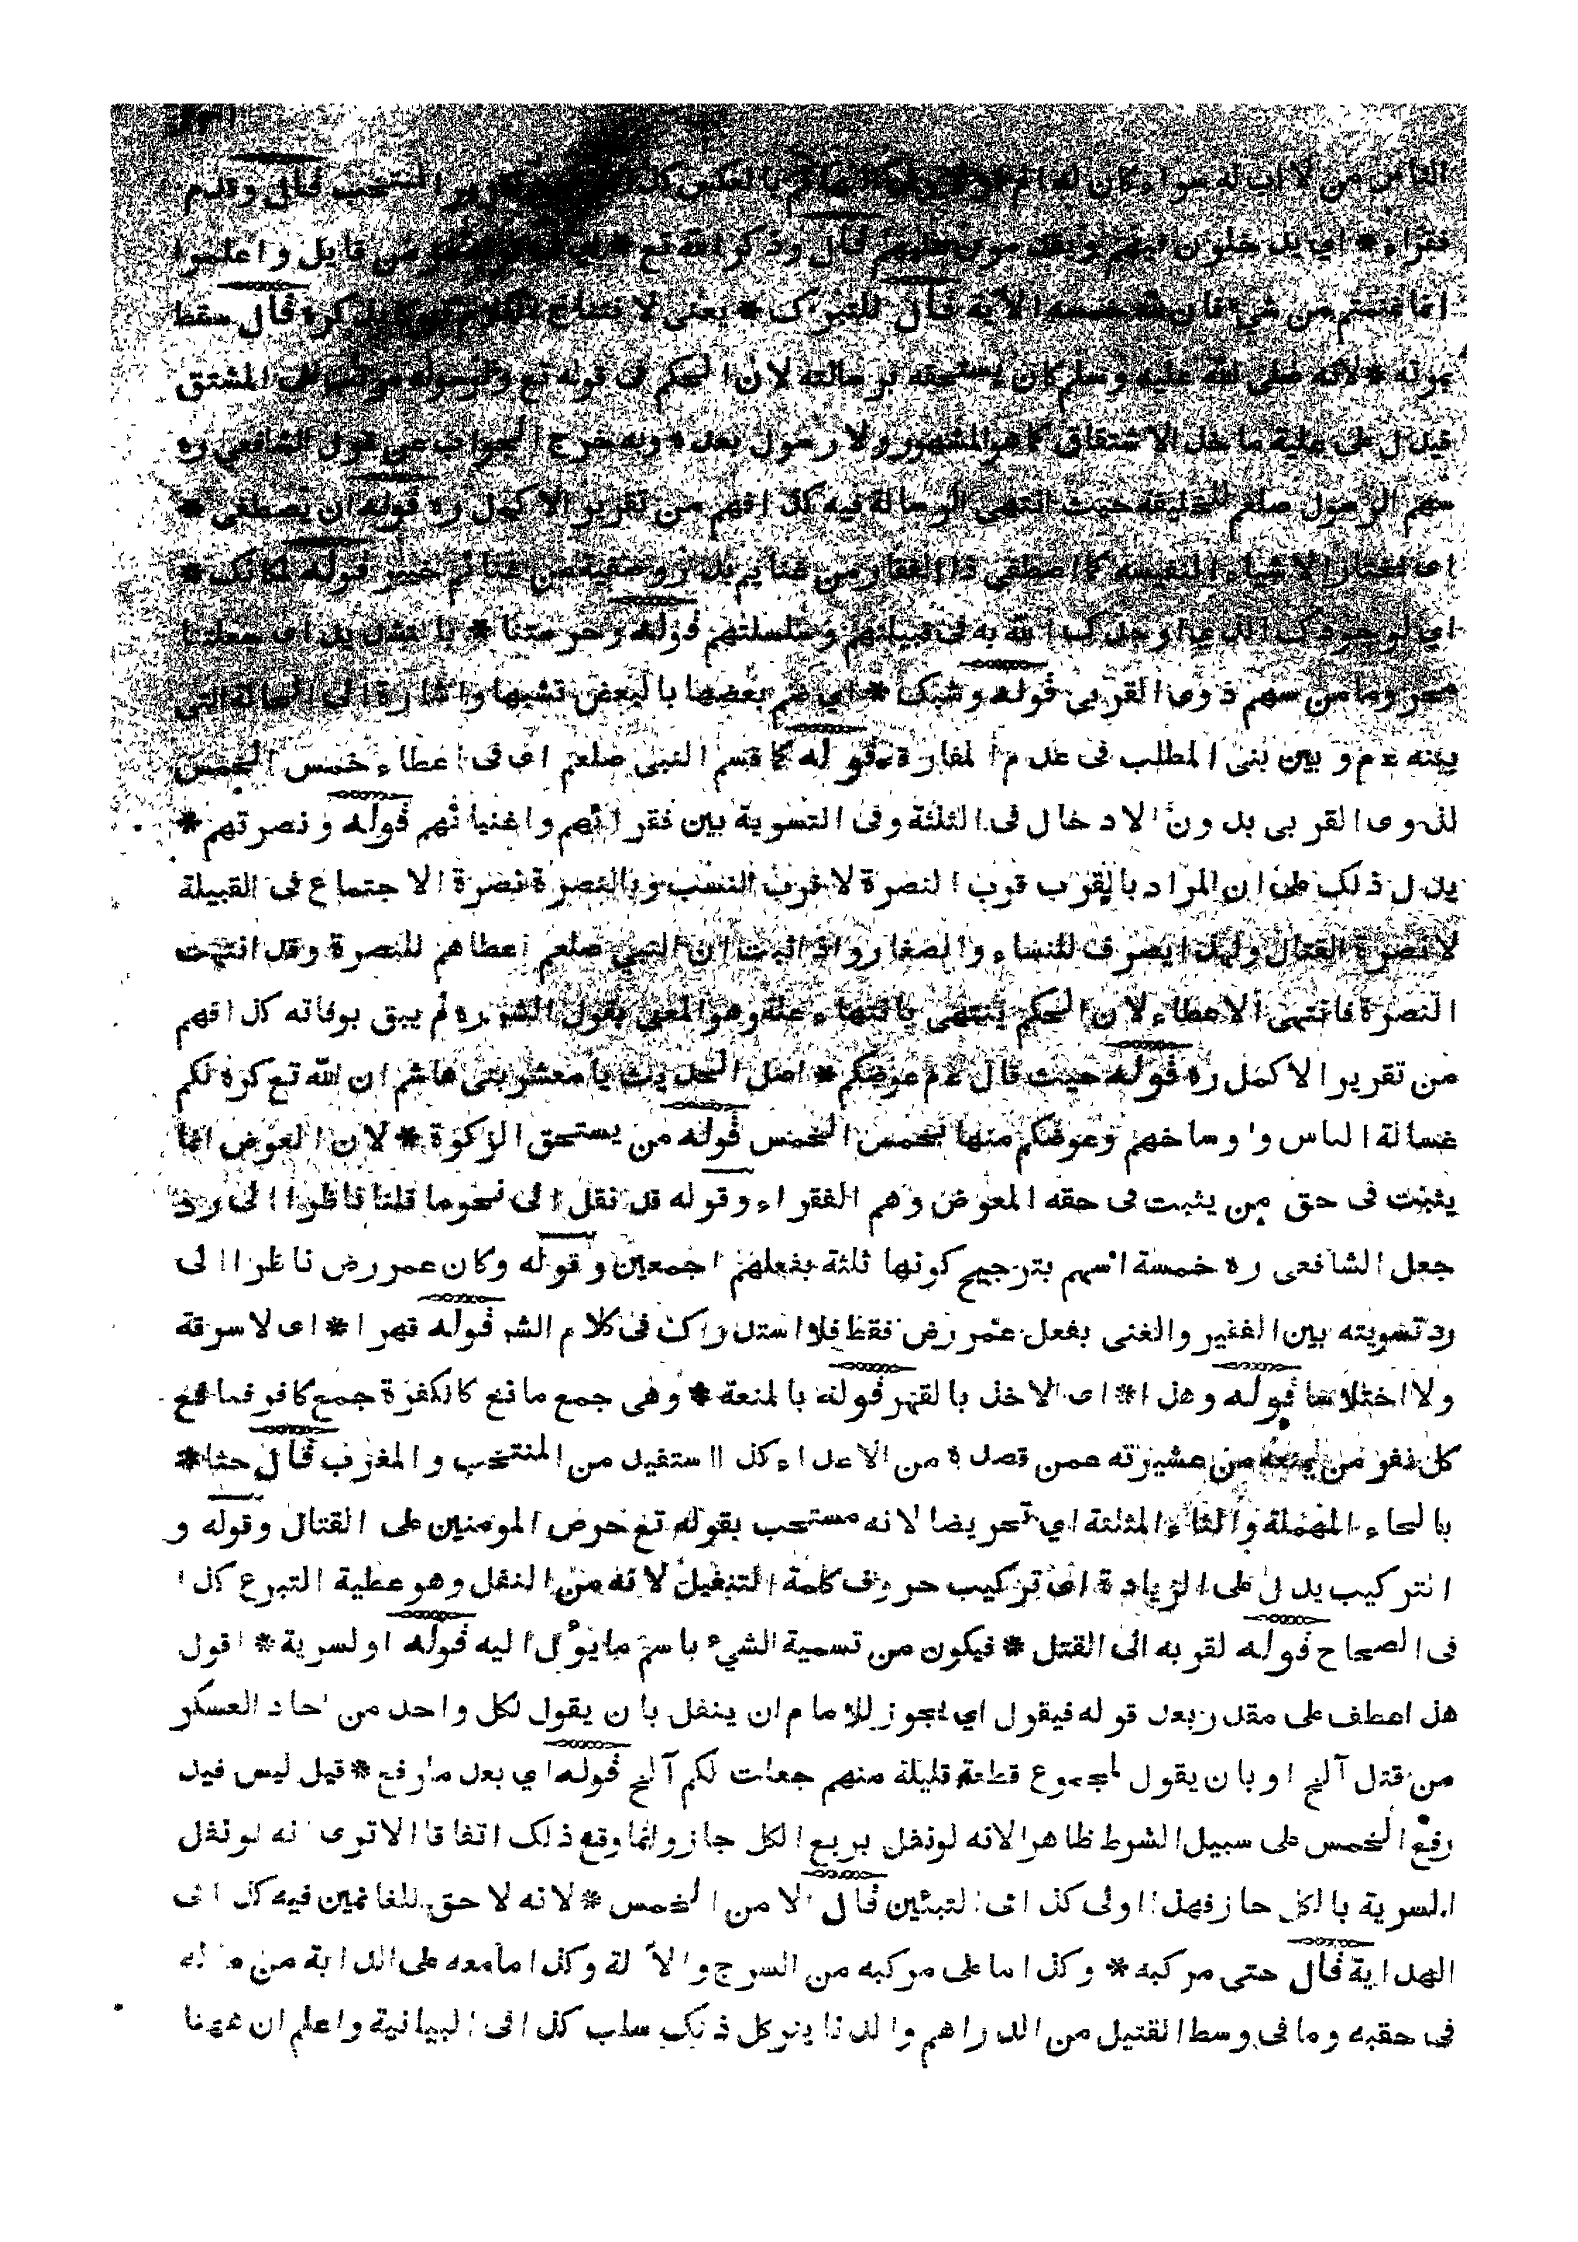 الناس من لا اب له سواء كان له ام بالعكس المنتخب قال وقدم
فقراء * اي يدخلون فيهم ويقدمون عليهم قال وذكر الله تع * من قايل واعلموا
انما غنمتم من شئ فان لله خمسه الآية قال للتبرك * يعنى لافتتاح الكلام تبركا بذكره قال سقط
بموته * لانه صلى الله عليه وسلم كان يستحقه برسالته لان الحكم فى قوله تع وللرسول مرتب على المشتق
فيدل على علية ماخذ الاشتقاق كما هو المشهور ولا رسول بعده وبه خرج الجواب عن قول الشافعى ره
سهم الرسول صلعم للخليفة حيث انتهى الرسالة فيه كذا فهم من تقرير الاكمل ره قوله ان يصطفى *
اى اختار الاشياء النفيسة كما اصطفى ذا الفقار من غنايم بدر وصفية من غنائم خيبر قوله لمكانك *
اي لوجودك الذي اوجدك الله به فى قبيلتهم وسلسلتهم قوله وحرمتنا * بالتشديد اى جعلتنا
محروما من سهم ذوى القربى قوله وشبك * اي ضم بعضها بالبعض تشبها واشارة الى الحالة التى
بينه ءم وبين بنى المطلب فى عدم المفارة قوله كما قسم النبى صلعم اى فى اعطاء خمس الخمس
لذوى القربى بدون الادخال فى الثلثة وفى التسوية بين فقرائهم واغنيائهم قوله ونصرتهم *
يدل ذلك على ان المراد بالقرب قرب النصرة لا قرب النسب وبالنصرة نصرة الاجتماع فى القبيلة
لا نصرة القتال ولهذا يصرف للنساء والصغار واذا ثبت ان النبى صلعم اعطاهم للنصرة وقد انتهت
النصرة فانتهى الاعطاء لان الحكم ينتهى بانتهاء علة وهو المعنى بقول الشر ره لم يبق بوفاته كذا فهم
من تقرير الاكمل ره قوله حيث قال ءم عوضكم * اصل الحديث يا معشر بنى هاشم ان الله تع كره لكم
غسالة الناس واوساخهم وعوضكم منها بخمس الخمس قوله من يستحق الزكوة * لان العوض انما
يثبت فى حق من يثبت فى حقه المعوض وهم الفقراء وقوله قد نقل الى نحو ما قلنا ناظرا الى رد
جعل الشافعى ره خمسة اسهم بترجيح كونها ثلثة بفعلهم اجمعين وقوله وكان عمر رض ناظرا الى
رد تسويته بين الفقير والغنى بفعل عمر رض فقط فلا استدراك فى كلام الشر قوله قهرا * اى لا سرقة
ولا اختلاسا قوله وهذا * اى الاخذ بالقهر قوله بالمنعة * وهى جمع مانع كالكفرة جمع كافر فمانع
كل نفر من يمنعه من عشيرته عمن قصده من الاعداء كذا استفيد من المنتخب والمغرب قال حثا *
بالحاء المهملة والثاء المثلثة اي تحريضا لانه مستحب بقوله تع حرض المومنين على القتال وقوله و
التركيب يدل على الزيادة اى تركيب حروف كلمة التنفيل لانه من النفل وهو عطية التبرع كذا
فى الصحاح قوله لقربه الى القتل * فيكون من تسمية الشيء باسم ما يؤل اليه قوله او لسرية * اقول
هذا عطف على مقدر بعد قوله فيقول اي يجوز للامام ان ينفل بان يقول لكل واحد من احاد العسكر
من قتل آلخ او بان يقول لمجموع قطعة قليلة منهم جعلت لكم آلخ قوله اي بعد ما رفع * قيل ليس قيد
رفع الخمس على سبيل الشرط ظاهرا لانه لو نفل بربع الكل جاز وانما وقع ذلك اتفاقا الا ترى انه لو نفل
السرية بالكل جاز فهذا اولى كذا فى التبئين قال الا من الخمس * لانه لا حق للغانمين فيه كذا فى
الهداية قال حتى مركبه * وكذا ما على مركبه من السرج والآلة وكذا ما معه على الدابة من ماله
فى حقبه وما فى وسط القتيل من الدراهم والدنانير كل ذلك سلب كذا فى البيانية واعلم ان ههنا